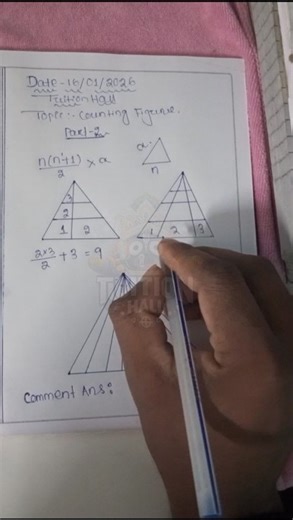 Date - 16/01/2026
Tuition Hall
Topic :- Counting Figure.
Part-2
n(n+1)/2 × a
a
n
3
2
1 2
1 2 3
2×3/2 + 3 = 9
TUITION
HALL
Comment Ans: